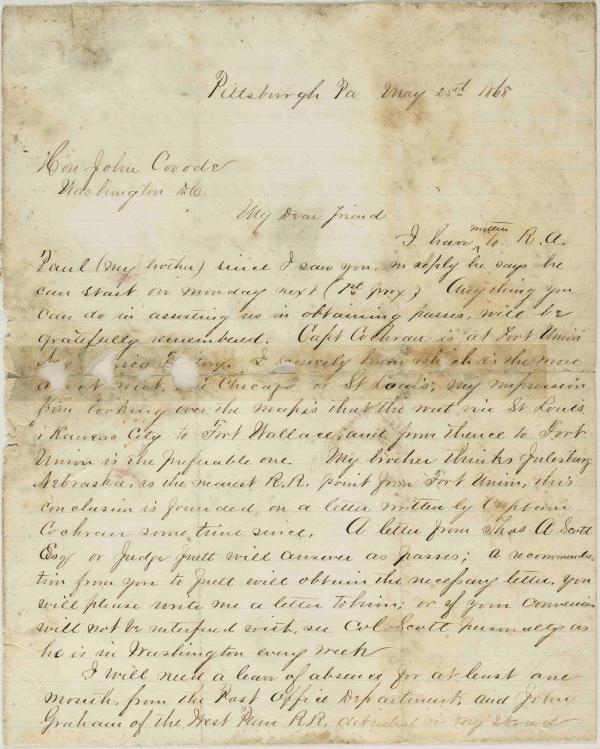 Pittsburgh Pa May 25th 1868
Hon John Covode
Washington D.C.
My Dear Friend
I have written to R. A.
Paul (my brother) since I saw you, in reply he says he
can start on Monday next (1st prox) Anything you
can do in assisting us in obtaining passes, will be
gratefully remembered. Capt Cochran is at Fort Union
I scarcely know which is the more
direct route, via Chicago or St Louis; my impression
from looking over the map is that the rout via St Louis
& Kansas City to Fort Wallace, and from thence to Fort
Union is the preferable one. My brother thinks Julesburg
Nebraska, is the nearest R.R. point from Fort Union, this
conclusion is founded on a letter written by Captain
Cochran some time since. A letter from Thos A Scott
Esq or Judge will answer as passes; a recommenda-
tion from you to will obtain the necessary letter. You
will please write me a letter to him; or if your convenience
will not be interfered with, see Col Scott personally as
he is in Washington every week
I will need a leave of absence for at least one
month, from the Post Office Department, and John
Graham of the West Penn R.R. detailed in my stead